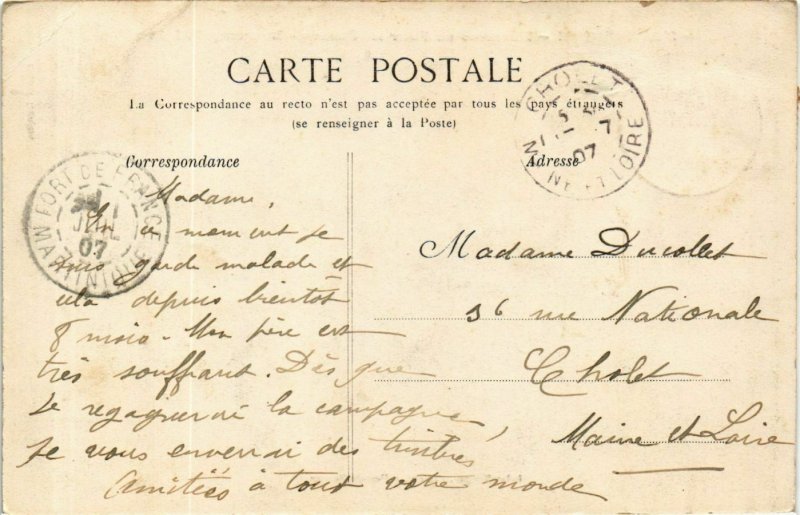 CARTE POSTALE
La Correspondance au recto n'est pas acceptée par tous les pays étrangers
(se renseigner à la Poste)
Correspondance
Adresse
FORT DE FRANCE
07
MARTINIQUE
CHOLET
07
MAINE ET LOIRE
Madame,
En ce moment je
suis garde malade et
cela depuis bientôt
8 mois. Mon père est
très souffrant. Dès que
Je regagnerai la campagne,
Je vous enverrai des timbres
Amitiés à tout votre monde
Madame Ducollet
36 rue Nationale
Cholet
Maine et Loire